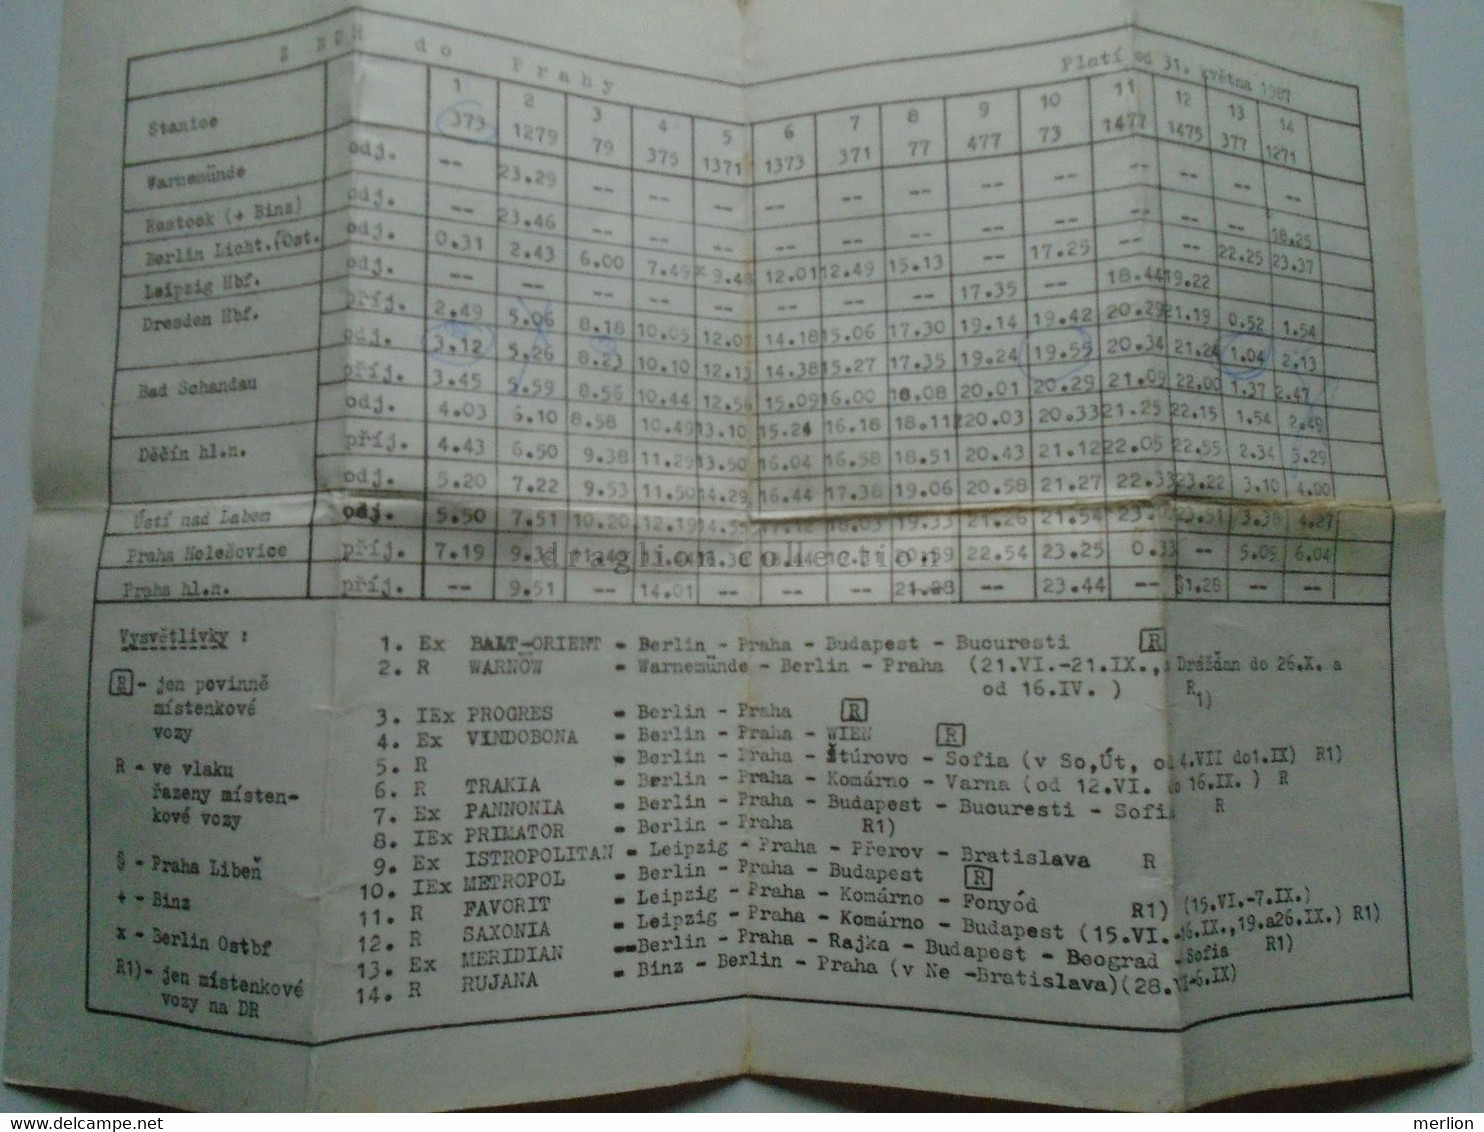 Z NDR do Prahy Platí od 31. května 1987
1 2 3 4 5 6 7 8 9 10 11 12 13 14
Stanice 373 1279 79 375 1371 1373 371 77 477 73 1477 1475 377 1271
Warnemünde odj. -- 23.29 -- -- -- -- -- -- -- -- -- -- -- --
Rostock (+ Binz) odj. -- 23.46 -- -- -- -- -- -- -- -- -- -- -- 18.25
Berlin Licht.(Ost. odj. 0.31 2.43 6.00 7.49 x 9.48 12.01 12.49 15.13 -- 17.25 -- -- 22.25 23.37
Leipzig Hbf. odj. -- -- -- -- -- -- -- -- 17.35 -- 18.44 19.22 -- --
Dresden Hbf. příj. 2.49 5.06 8.18 10.05 12.07 14.18 15.06 17.30 19.14 19.42 20.29 21.19 0.52 1.54
odj. 3.12 5.26 8.23 10.10 12.13 14.38 15.27 17.35 19.24 19.55 20.34 21.24 1.04 2.13
Bad Schandau příj. 3.45 5.59 8.56 10.44 12.56 15.09 16.00 18.08 20.01 20.29 21.09 22.00 1.37 2.47
odj. 4.03 6.10 8.58 10.49 13.10 15.24 16.18 18.11 20.03 20.33 21.25 22.15 1.54 2.49
Děčín hl.n. příj. 4.43 6.50 9.38 11.29 13.50 16.04 16.58 18.51 20.43 21.12 22.05 22.55 2.34 3.29
odj. 5.20 7.22 9.53 11.50 14.29 16.44 17.38 19.06 20.58 21.27 22.33 23.22 3.10 4.00
Ústí nad Labem odj. 5.50 7.51 10.20 12.19 14.58 17.12 18.03 19.33 21.26 21.54 23.51 3.38 4.27
Praha Holešovice příj. 7.19 20.59 22.54 23.25 0.33 -- 5.09 6.04
draglion collection
Praha hl.n. příj. -- 9.51 -- 14.01 -- -- -- 21.28 -- 23.44 -- §1.28 -- --
Vysvětlivky :
R - jen povinně
místenkové
vozy
R - ve vlaku
řazeny místen-
kové vozy
§ - Praha Libeň
+ - Binz
x - Berlin Ostbf
R1)- jen místenkové
vozy na DR
1. Ex BALT-ORIENT - Berlin - Praha - Budapest - Bucuresti R
2. R WARNOW - Warnemünde - Berlin - Praha (21.VI.-21.IX., Drážďan do 26.X. a
od 16.IV. ) R1)
3. IEx PROGRES - Berlin - Praha R
4. Ex VINDOBONA - Berlin - Praha - WIEN R
5. R - Berlin - Praha - Štúrovo - Sofia (v So,Út, od 4.VII do1.IX) R1)
6. R TRAKIA - Berlin - Praha - Komárno - Varna (od 12.VI. do 16.IX. ) R
7. Ex PANNONIA - Berlin - Praha - Budapest - Bucuresti - Sofia R
8. IEx PRIMATOR - Berlin - Praha R1)
9. Ex ISTROPOLITAN - Leipzig - Praha - Přerov - Bratislava R
10. IEx METROPOL - Berlin - Praha - Budapest R
11. R FAVORIT - Leipzig - Praha - Komárno - Fonyód R1) (15.VI.-7.IX.)
12. R SAXONIA - Leipzig - Praha - Komárno - Budapest (15.VI.-16.IX.,19.a26.IX.) R1)
13. Ex MERIDIAN --Berlin - Praha - Rajka - Budapest - Beograd - Sofia R1)
14. R RUJANA - Binz - Berlin - Praha (v Ne -Bratislava)(28.VI-6.IX)
merlion
www.delcampe.net